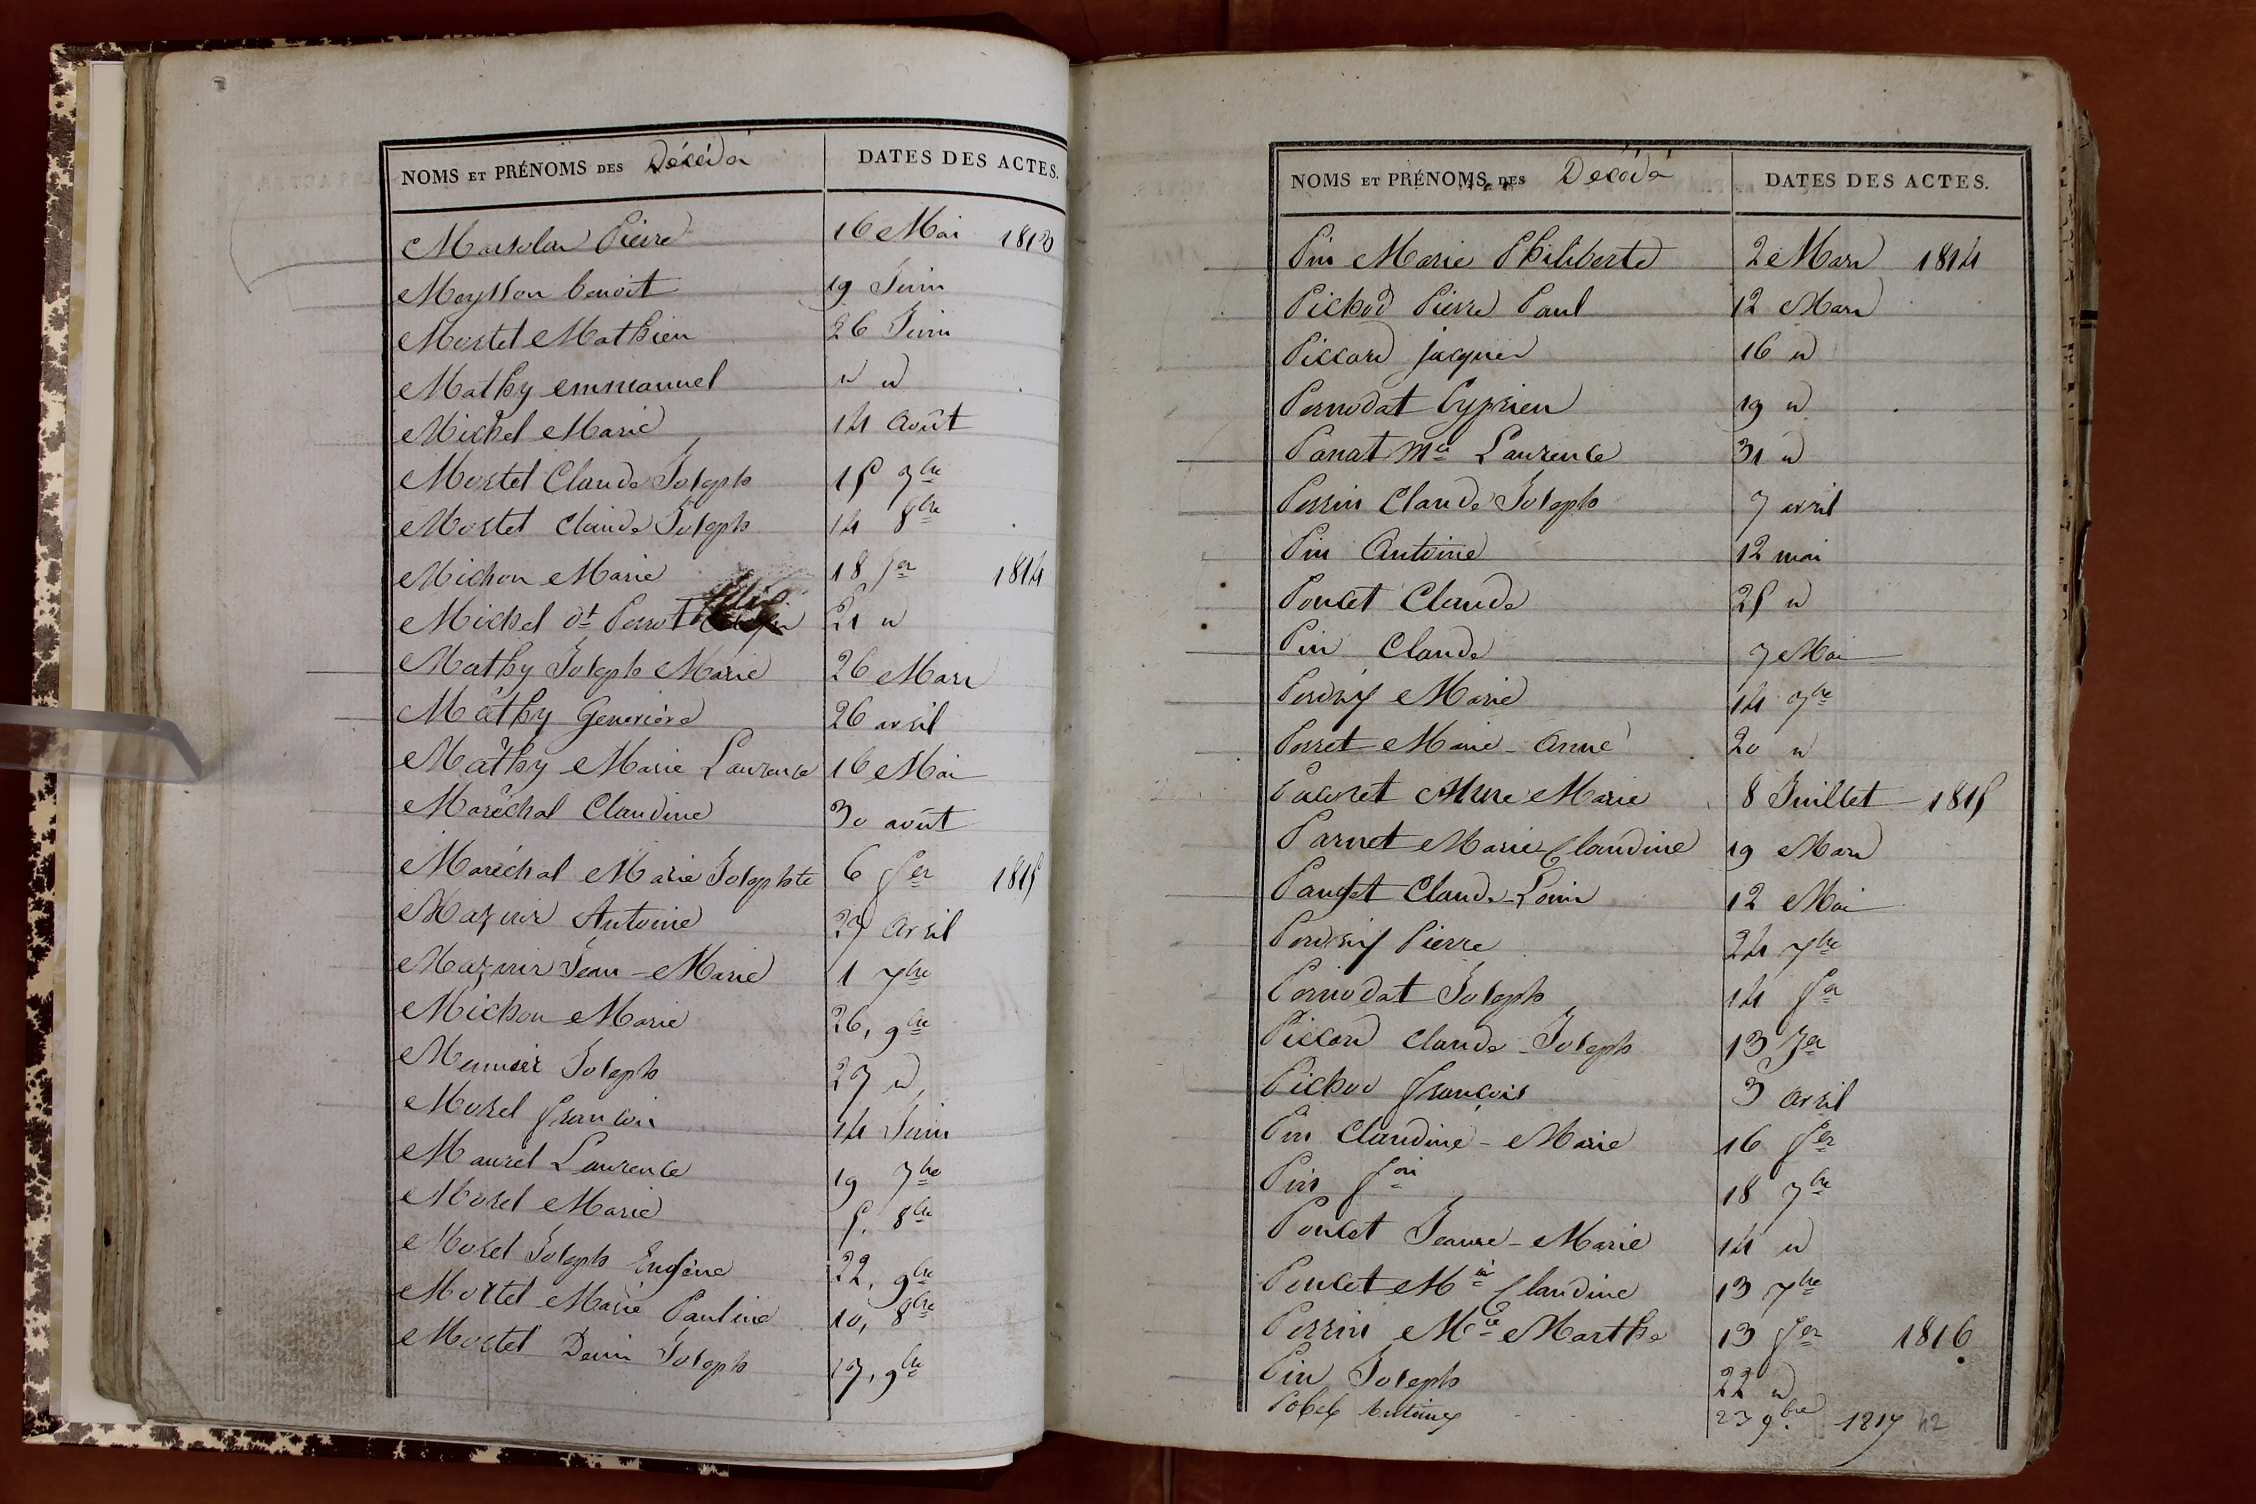 NOMS ET PRÉNOMS DES Décédés DATES DES ACTES.
Pierre 16 Mai 1813
Meysson benoit 19 Juin
Mortel Mathieu 26 Juin
Mathy emmanuel " "
Michel Marie 14 Août
Mortel Claude Joseph 15 7bre
Mortel Claude Joseph 14 8bre
Michon Marie 18 fer 1814
Michel dt Perrot 21 "
Mathy Joseph Marie 26 Mars
Mathy Geneviève 26 avril
Mathy Marie Laurence 16 Mai
Maréchal Claudine 30 août
Maréchal Marie Josephte 6 fer 1815
Mazuir Antoine 27 avril
Mazuir Jean-Marie 1 7bre
Michon Marie 26, 9bre
Meunier Joseph 27 "
Morel françois 14 Juin
Maurel Laurence 19 7bre
Morel Marie 5. 8bre
Morel Joseph Eugène 22, 9bre
Mortel Marie Pauline 10, 8bre
Mortel Denis Joseph 17, 9bre
NOMS ET PRÉNOMS DES Décédés DATES DES ACTES.
Pin Marie Philiberte 2 Mars 1814
Pichod Pierre Paul 12 Mars
Piccard jacques 16 "
Pernodat Cyprien 19 "
Panat Mie Laurence 31 "
Perrin Claude Joseph 7 avril
Pin Antoine 12 mai
Poncet Claude 25 "
Pin Claude 7 Mai
Perdrix Marie 14 7bre
Perret Marie-Anne 20 "
Marie 8 Juillet 1815
Parnet Marie Claudine 19 Mars
Panget Claude-Louis 12 Mai
Perdrix Pierre 24 7bre
Pernodat Joseph 14 fer
Piccard Claude-Joseph 13 Jer
Pichod françois 3 avril
Pin Claudine-Marie 16 fer
Pin fois 18 7bre
Poncet Jeanne-Marie 14 "
Poncet Mie Claudine 13 7bre
Perrin Mie Marthe 13 fer 1816
Pin Joseph 22 "
Pobel Antoine 23 9bre 1817 42